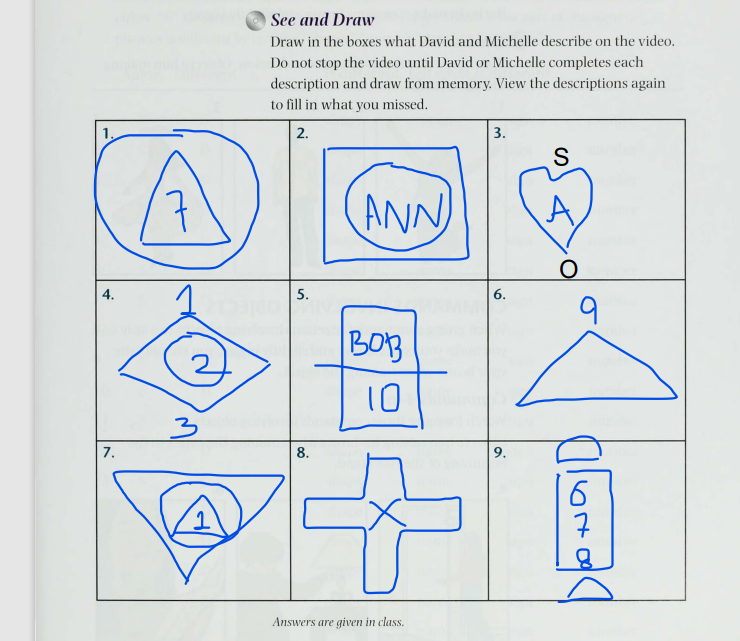 See and Draw
Draw in the boxes what David and Michelle describe on the video.
Do not stop the video until David or Michelle completes each
description and draw from memory. View the descriptions again
to fill in what you missed.
1.
7
2.
ANN
3.
S
A
O
4.
1
2
3
5.
BOB
10
6.
9
7.
1
8.
X
9.
6
7
8
Answers are given in class.